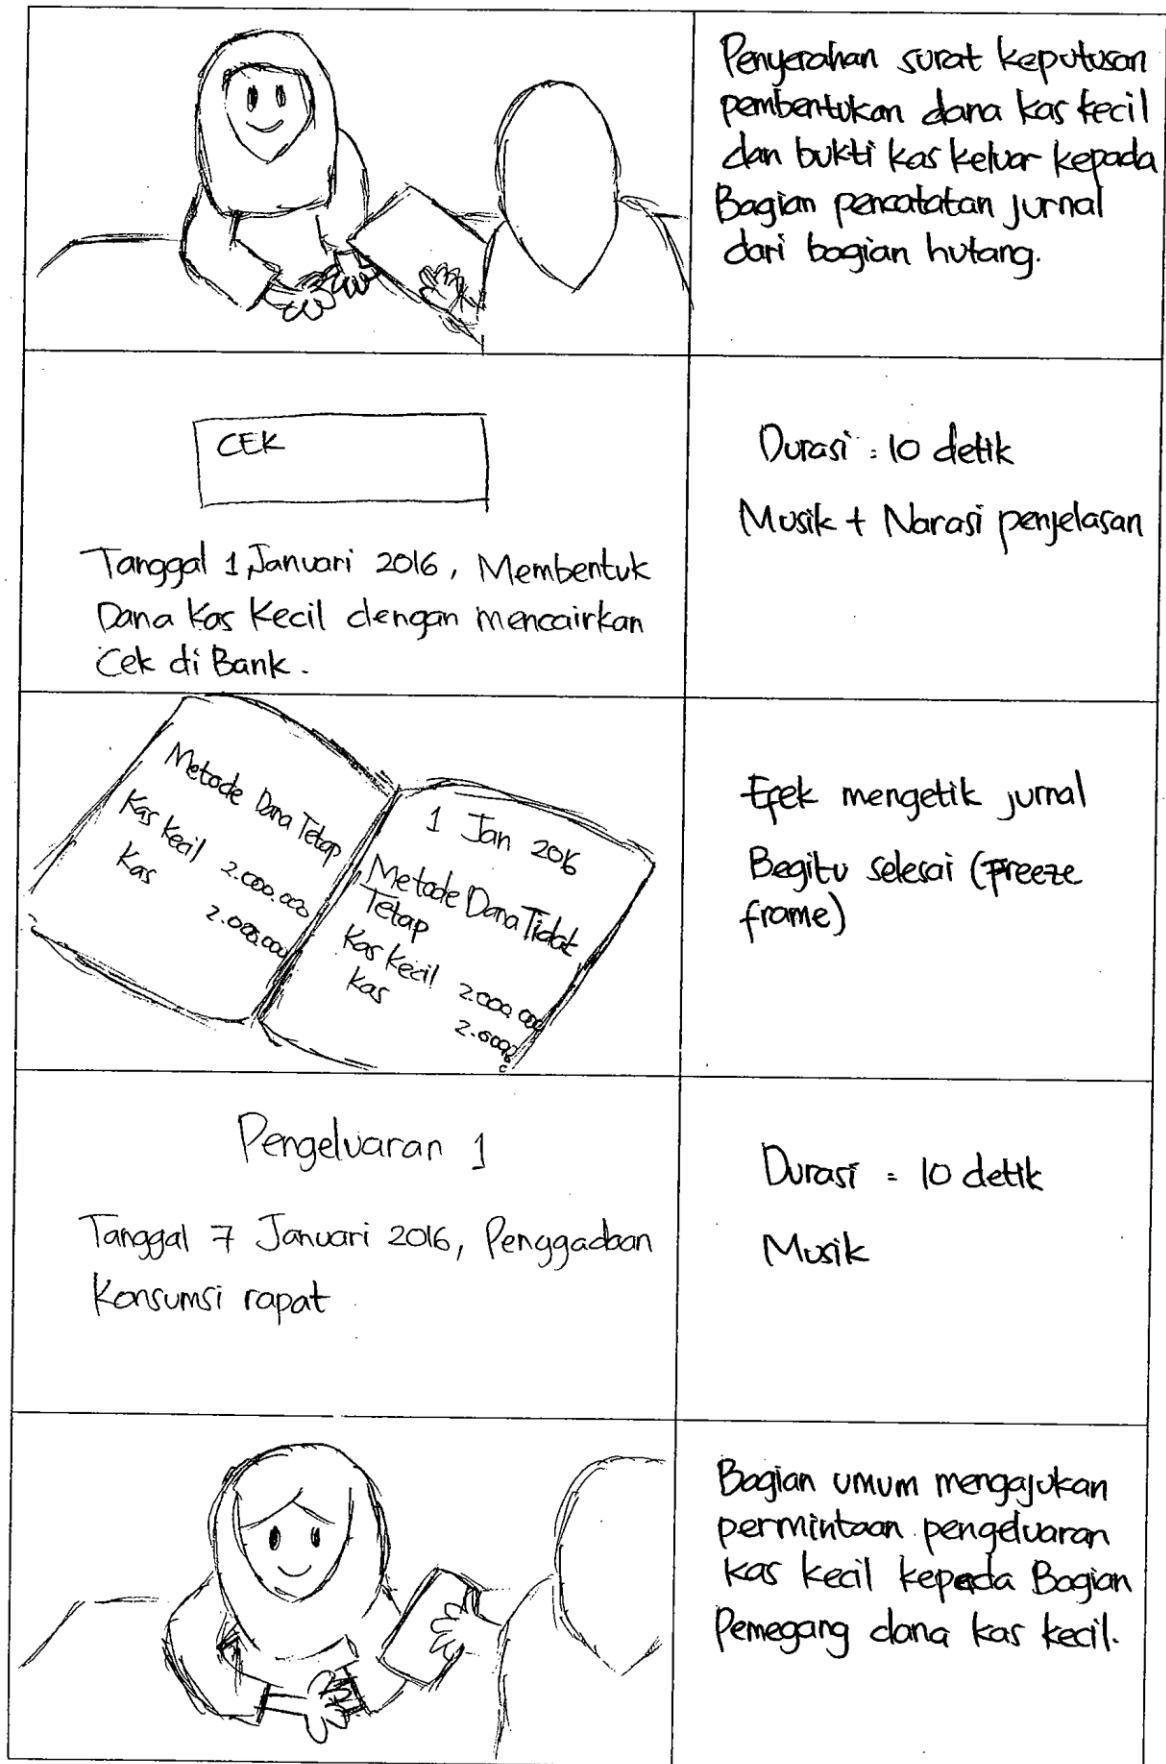 Penyerahan surat keputusan
pembentukan dana kas kecil
dan bukti kas keluar kepada
Bagian pencatatan jurnal
dari bagian hutang.
CEK
Tanggal 1 Januari 2016, Membentuk
Dana Kas Kecil dengan mencairkan
Cek di Bank.
Durasi : 10 detik
Musik + Narasi penjelasan
Metode Dana Tetap
Kas Kecil 2.000.000
Kas
2.000.000
1 Jan 2016
Metode Dana Tidak
Tetap
Kas Kecil 2.000.000
Kas
Efek mengetik jurnal
Begitu selesai (Freeze
frame)
Pengeluaran 1
Tanggal 7 Januari 2016, Penggadaan
Konsumsi rapat
Durasi = 10 detik
Musik
Bagian umum mengajukan
permintaan pengeluaran
kas kecil kepada Bagian
Pemegang dana kas kecil.